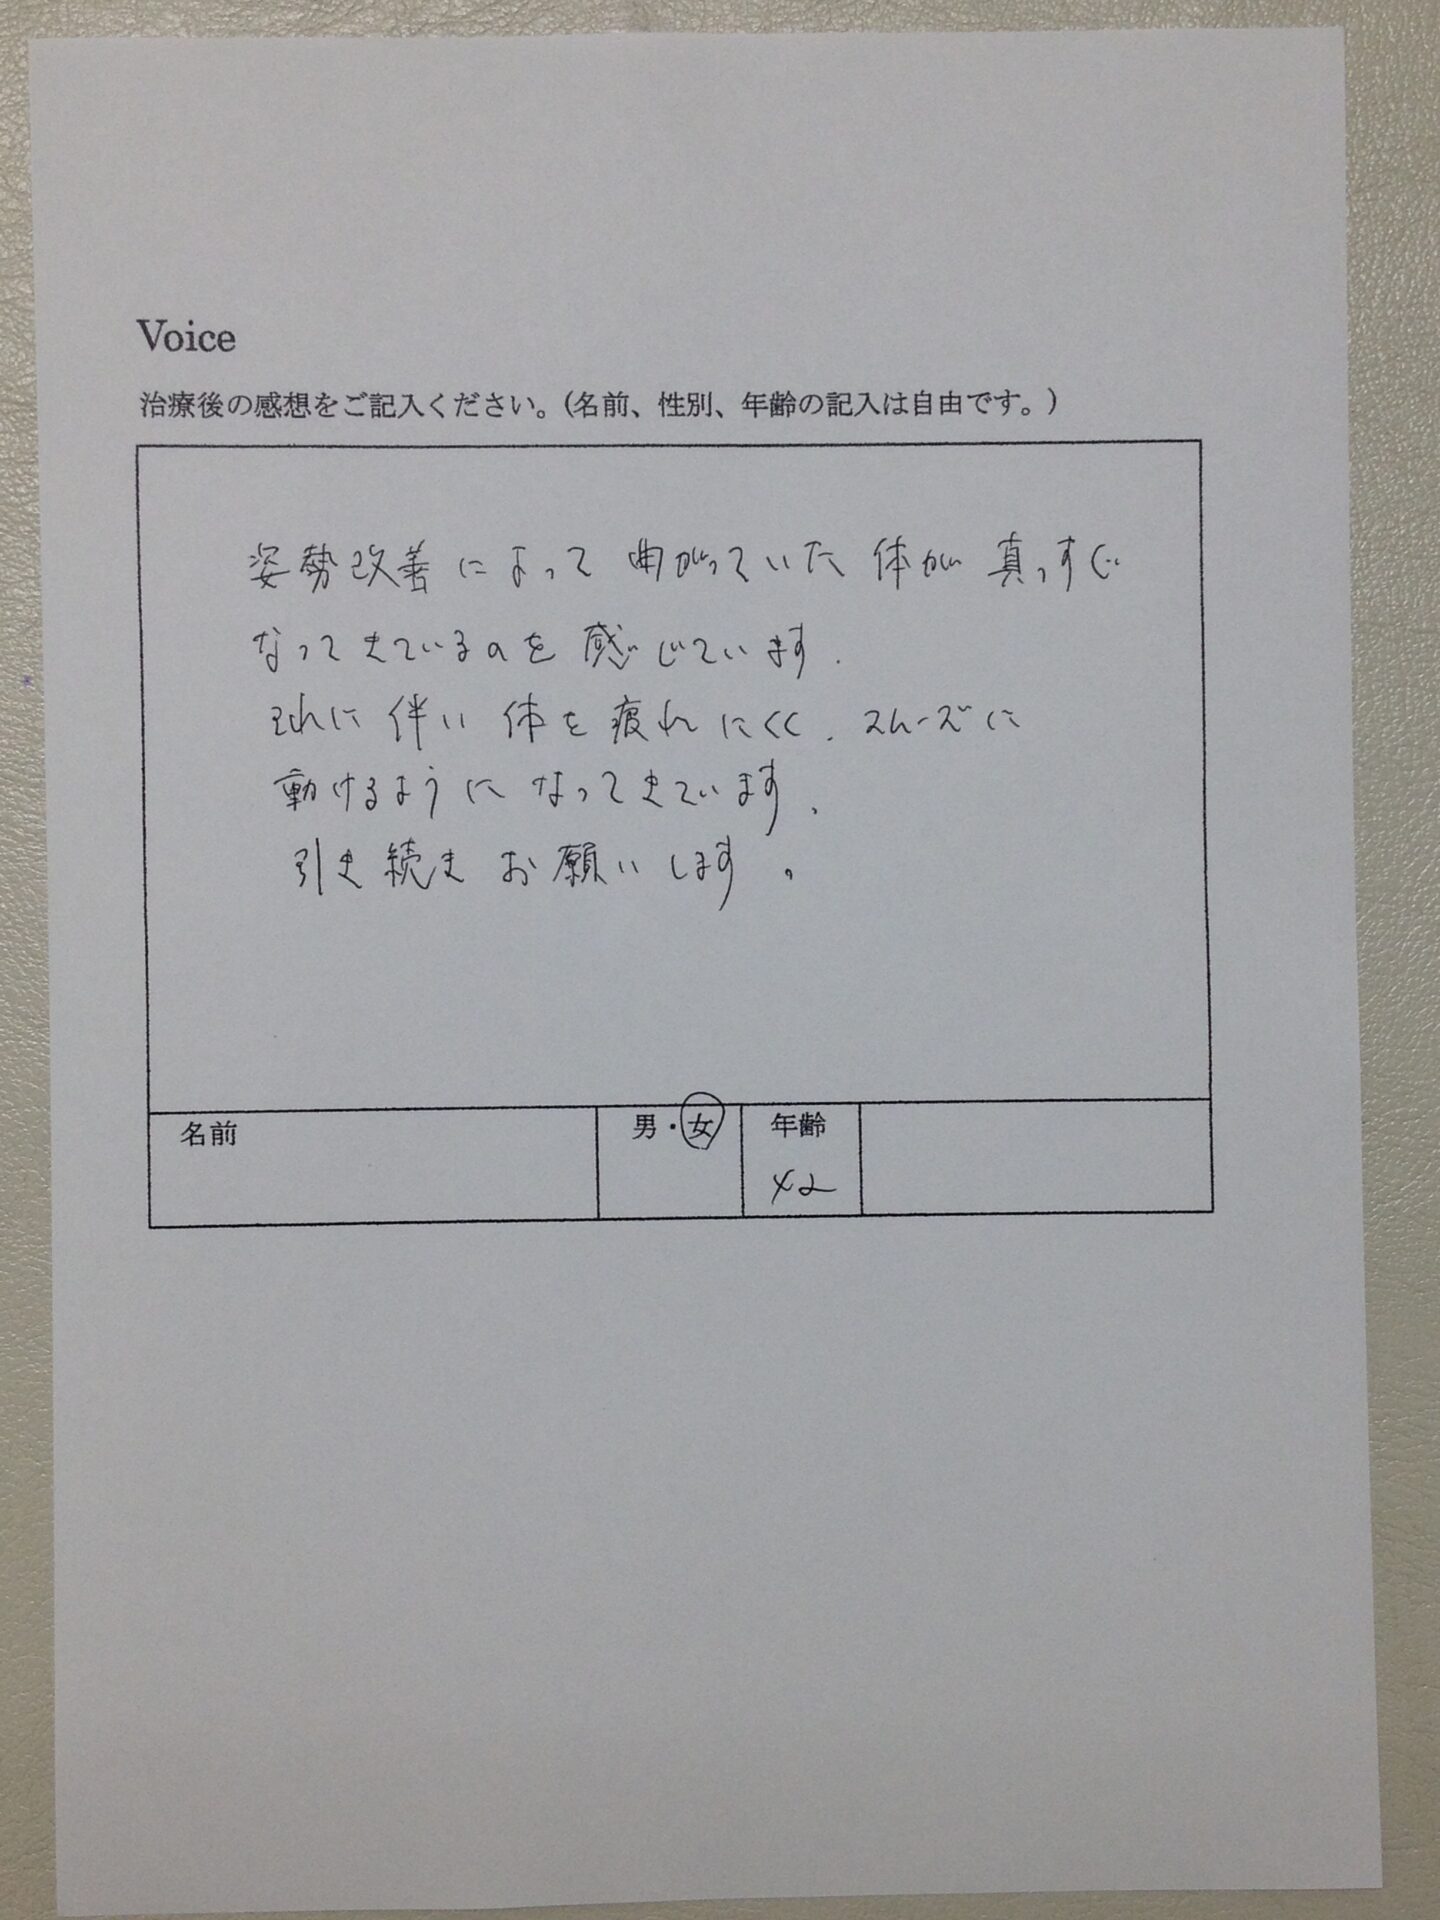 Voice
治療後の感想をご記入ください。(名前、性別、年齢の記入は自由です。)
姿勢改善によって曲がっていた体が真っすぐ
なってきているのを感じています.
それに伴い体を疲れにくく、スムーズに
動けるようになってきています。
引き続きお願いします。
名前 男・女 年齢
42